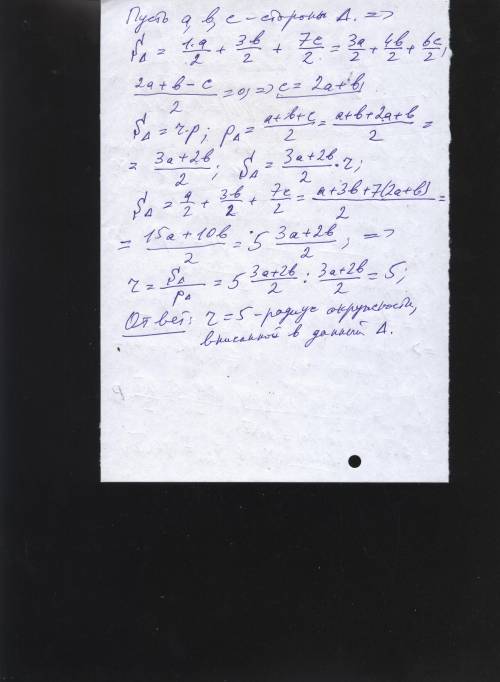 Пусть a, в, c – стороны Δ. =>
S_Δ = 1·a/2 + 3в/2 + 7c/2 = 3a/2 + 4в/2 + 6c/2;
(2a+в-c)/2 = 0; => c = 2a+в;
S_Δ = r·p; p_Δ = (a+в+c)/2 = (a+в+2a+в)/2 =
= (3a+2в)/2; S_Δ = (3a+2в)/2 · r;
S_Δ = a/2 + 3в/2 + 7c/2 = (a+3в+7(2a+в))/2 =
= (15a+10в)/2 = 5 (3a+2в)/2; =>
r = S_Δ/p_Δ = 5 (3a+2в)/2 : (3a+2в)/2 = 5;
Ответ: r = 5 – радиус окружности,
вписанной в данный Δ.